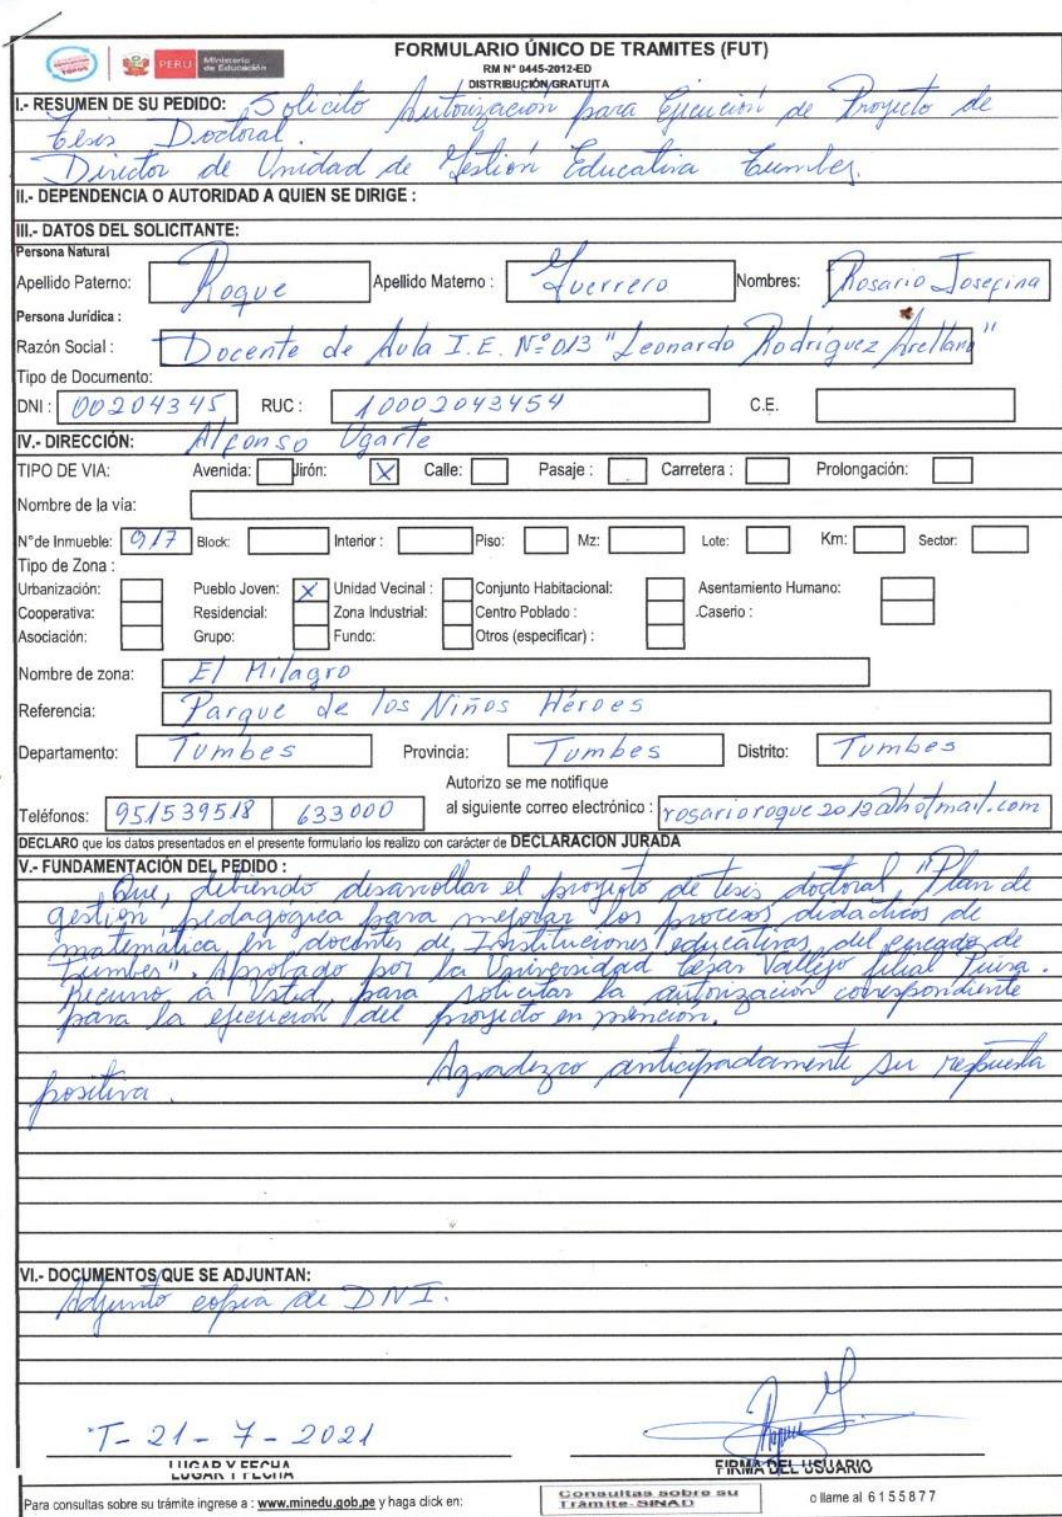 PERÚ Ministerio de Educación
FORMULARIO ÚNICO DE TRAMITES (FUT)
RM N° 0445-2012-ED
DISTRIBUCIÓN GRATUITA
I.- RESUMEN DE SU PEDIDO: Solicito Autorización para Ejecución de Proyecto de
tesis Doctoral.
Director de Unidad de Gestión Educativa Tumbes.
II.- DEPENDENCIA O AUTORIDAD A QUIEN SE DIRIGE :
III.- DATOS DEL SOLICITANTE:
Persona Natural
Apellido Paterno: Roque Apellido Materno : Guerrero Nombres: Rosario Josefina
Persona Jurídica :
Razón Social : Docente de Aula I.E. Nº 013 "Leonardo Rodríguez Arellano"
Tipo de Documento:
DNI : 00204345 RUC : 10002043454 C.E.
IV.- DIRECCIÓN: Alfonso Ugarte
TIPO DE VIA: Avenida: Jirón: X Calle: Pasaje : Carretera : Prolongación:
Nombre de la vía:
N°de Inmueble: 917 Block: Interior : Piso: Mz: Lote: Km: Sector:
Tipo de Zona :
Urbanización: Pueblo Joven: X Unidad Vecinal : Conjunto Habitacional: Asentamiento Humano:
Cooperativa: Residencial: Zona Industrial: Centro Poblado : .Caserio :
Asociación: Grupo: Fundo: Otros (especificar) :
Nombre de zona: El Milagro
Referencia: Parque de los Niños Héroes
Departamento: Tumbes Provincia: Tumbes Distrito: Tumbes
Autorizo se me notifique
Teléfonos: 951539518 633000 al siguiente correo electrónico : rosarioroque2012@hotmail.com
DECLARO que los datos presentados en el presente formulario los realizo con carácter de DECLARACION JURADA
V.- FUNDAMENTACIÓN DEL PEDIDO :
Que, debiendo desarrollar el proyecto de tesis doctoral "Plan de
gestión pedagógica para mejorar los procesos didácticos de
matemática en docentes de Instituciones educativas del cercado de
Tumbes". Aprobado por la Universidad César Vallejo filial Piura.
Recurro a Usted, para solicitar la autorización correspondiente
para la ejecución del proyecto en mención.
Agradezco anticipadamente su respuesta
positiva.
VI.- DOCUMENTOS QUE SE ADJUNTAN:
Adjunto copia de DNI.
T- 21 - 7 - 2021
LUGAR Y FECHA
LUGAR Y FECHA
FIRMA DEL USUARIO
Para consultas sobre su trámite ingrese a : www.minedu.gob.pe y haga click en: Consultas sobre su Trámite-SINAD o llame al 6155877